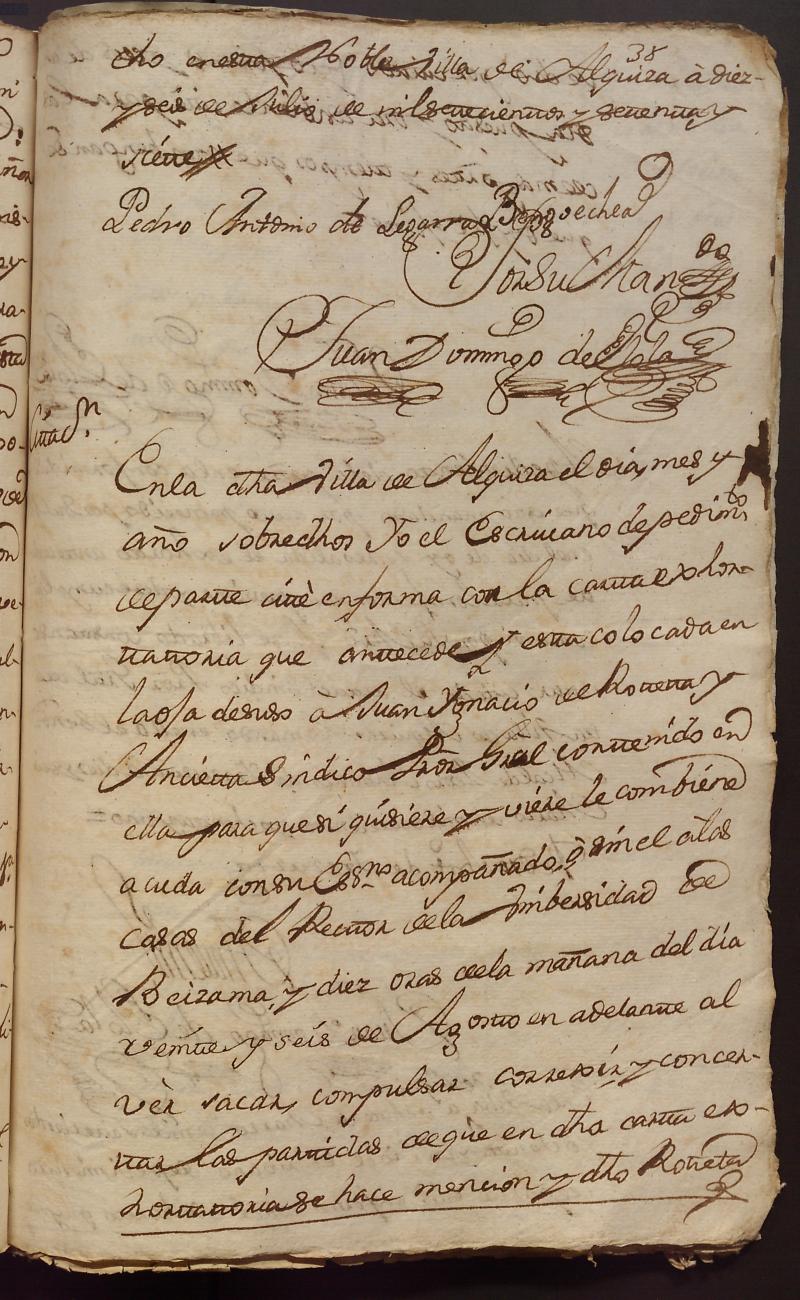 38
cho en esta Noble Villa de Alquiza à diez
y seis de Julio de mil setecientos y setenta y
siete
Pedro Antonio de Legarra
Por su Man.do
Juan Domingo de
Citaci.n
En la dha Villa de Alquiza el dia, mes y
año sobredhos Yo el Escrivano de pedim.to
de parte citè en forma con la carta exhor-
tattoria que antecede y esta colocada en
la oja de suso à Juan Ygnacio de Rotteta y
Ancieta Síndico Pror Gral conttenido en
ella para que si quisiere y viere le combiene
acuda con su Ess.no acompañado, ò sin el a las
casas del Rector de la Vnibersidad de
Beizama, y diez oras de la mañana del dia
veinte y seis de Agosto en adelante al
vèr sacar, compulsar correxir, y concer-
tar las partidas de que en dha carta exo-
hortattoria se hace mencion y dho Rotteta